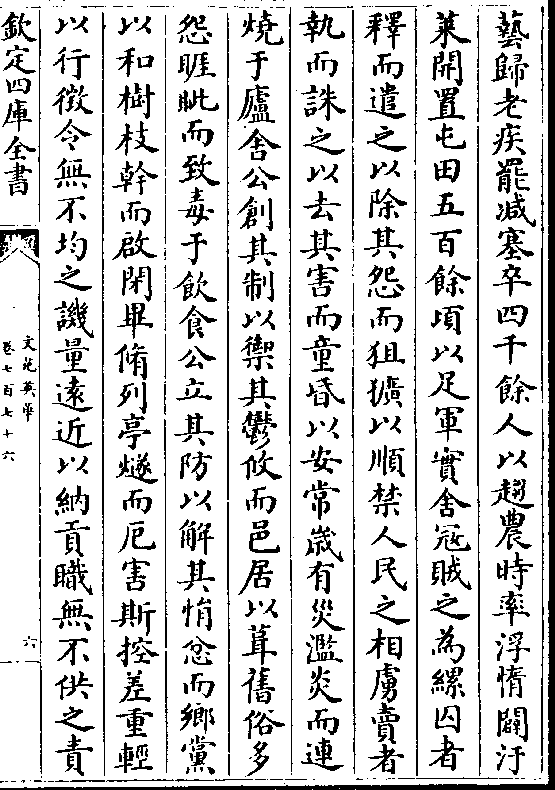 藝歸老疾罷減塞卒四千餘人以趨農時率浮惰闢汙
萊開置屯田五百餘頃以足軍實舍冦賊之為縲囚者
釋而遣之以除其怨而狙獷以順禁人民之相虜賣者
執而誅之以去其害而童昏以安常歲有災濫炎而連
燒于廬舍公創其制以禦其鬱攸而邑居以葺舊俗多
怨睚眦而致毒于飲食公立其防以解其悁忿而鄉黨
以和樹枝幹而啟閉畢脩列亭燧而厄害斯控差重輕
以行徴令無不均之譏量逺近以納貢職無不供之責
欽定四庫全書
文苑英華
卷七百七十六
六